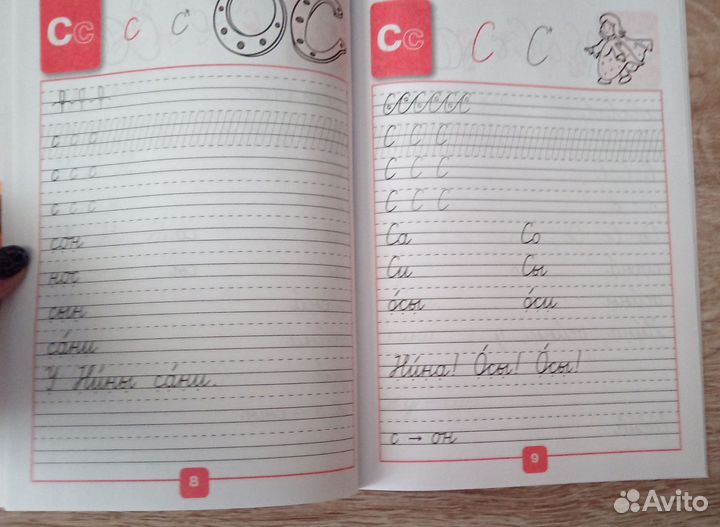 Сс с с
с с с
с с с
с с с
сон
нос
сын
са́ни
У Ни́ны са́ни.
8
Сс С С
С С С
С С С
С С С
Са Со
Си Сы
о́сы о́си
Ни́на! О́сы! О́сы!
с → он
9
Avito